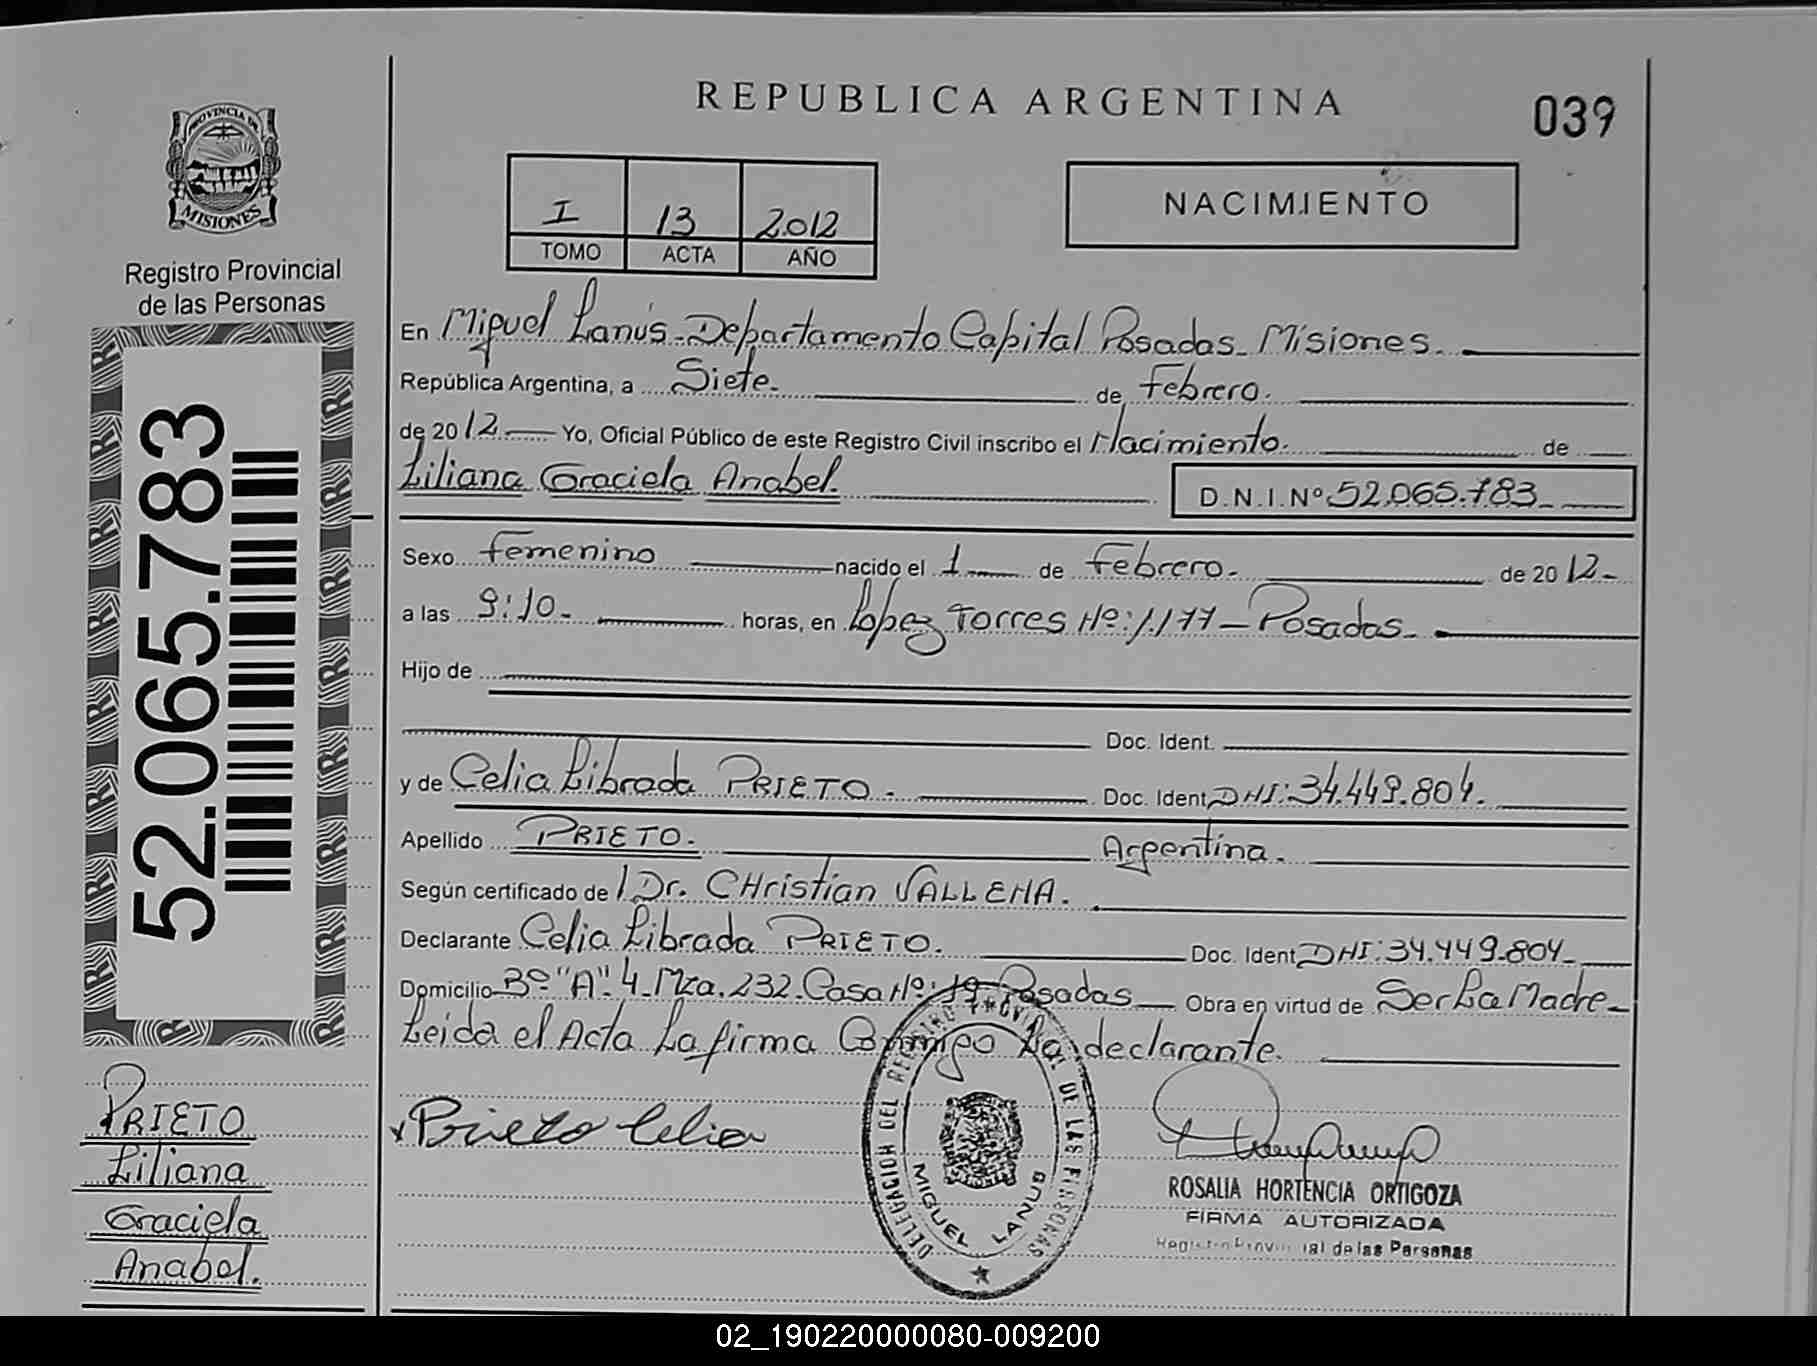 REPUBLICA ARGENTINA
039
PROVINCIA DE
MISIONES
Registro Provincial
de las Personas
I 13 2012
TOMO ACTA AÑO
NACIMIENTO
52.065.783
En Miguel Lanús - Departamento Capital Posadas - Misiones.
República Argentina, a Siete. de Febrero.
de 2012 Yo, Oficial Público de este Registro Civil inscribo el Nacimiento. de
Liliana Graciela Anabel. D.N.I.Nº 52.065.783
Sexo Femenino nacido el 1 de Febrero. de 2012-
a las 9:10- horas, en Lopez Torres Nº: 1.177 - Posadas.
Hijo de
Doc. Ident.
y de Celia Librada PRIETO. Doc. Ident. DNI: 34.449.804.
Apellido PRIETO. Argentina.
Según certificado de Dr. CHristian VALLENA.
Declarante Celia Librada PRIETO. Doc. Ident. DNI: 34.449.804
Domicilio Bº "A" 4 - Mza. 232. Casa Nº: 19 Posadas Obra en virtud de Ser La Madre -
Leida el Acta La firma Conmigo La declarante.
Prieto Celia
DELEGACION DEL REGISTRO PROVINCIAL DE LAS PERSONAS
MIGUEL LANUS
ROSALIA HORTENCIA ORTIGOZA
FIRMA AUTORIZADA
Registro Provincial de las Personas
PRIETO
Liliana
Graciela
Anabel.
02_190220000080-009200